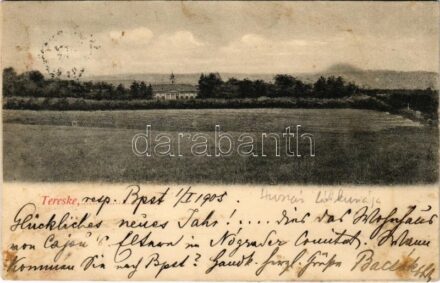 darabanth
Tereske, resp. Bpst 1/I 1905.
Glückliches neues Jahr! .... dies das Wohnhaus
von Eltern in Nógrader Comitat. Wann
kommen Sie nach Bpst? Handk. herzl. Grüße